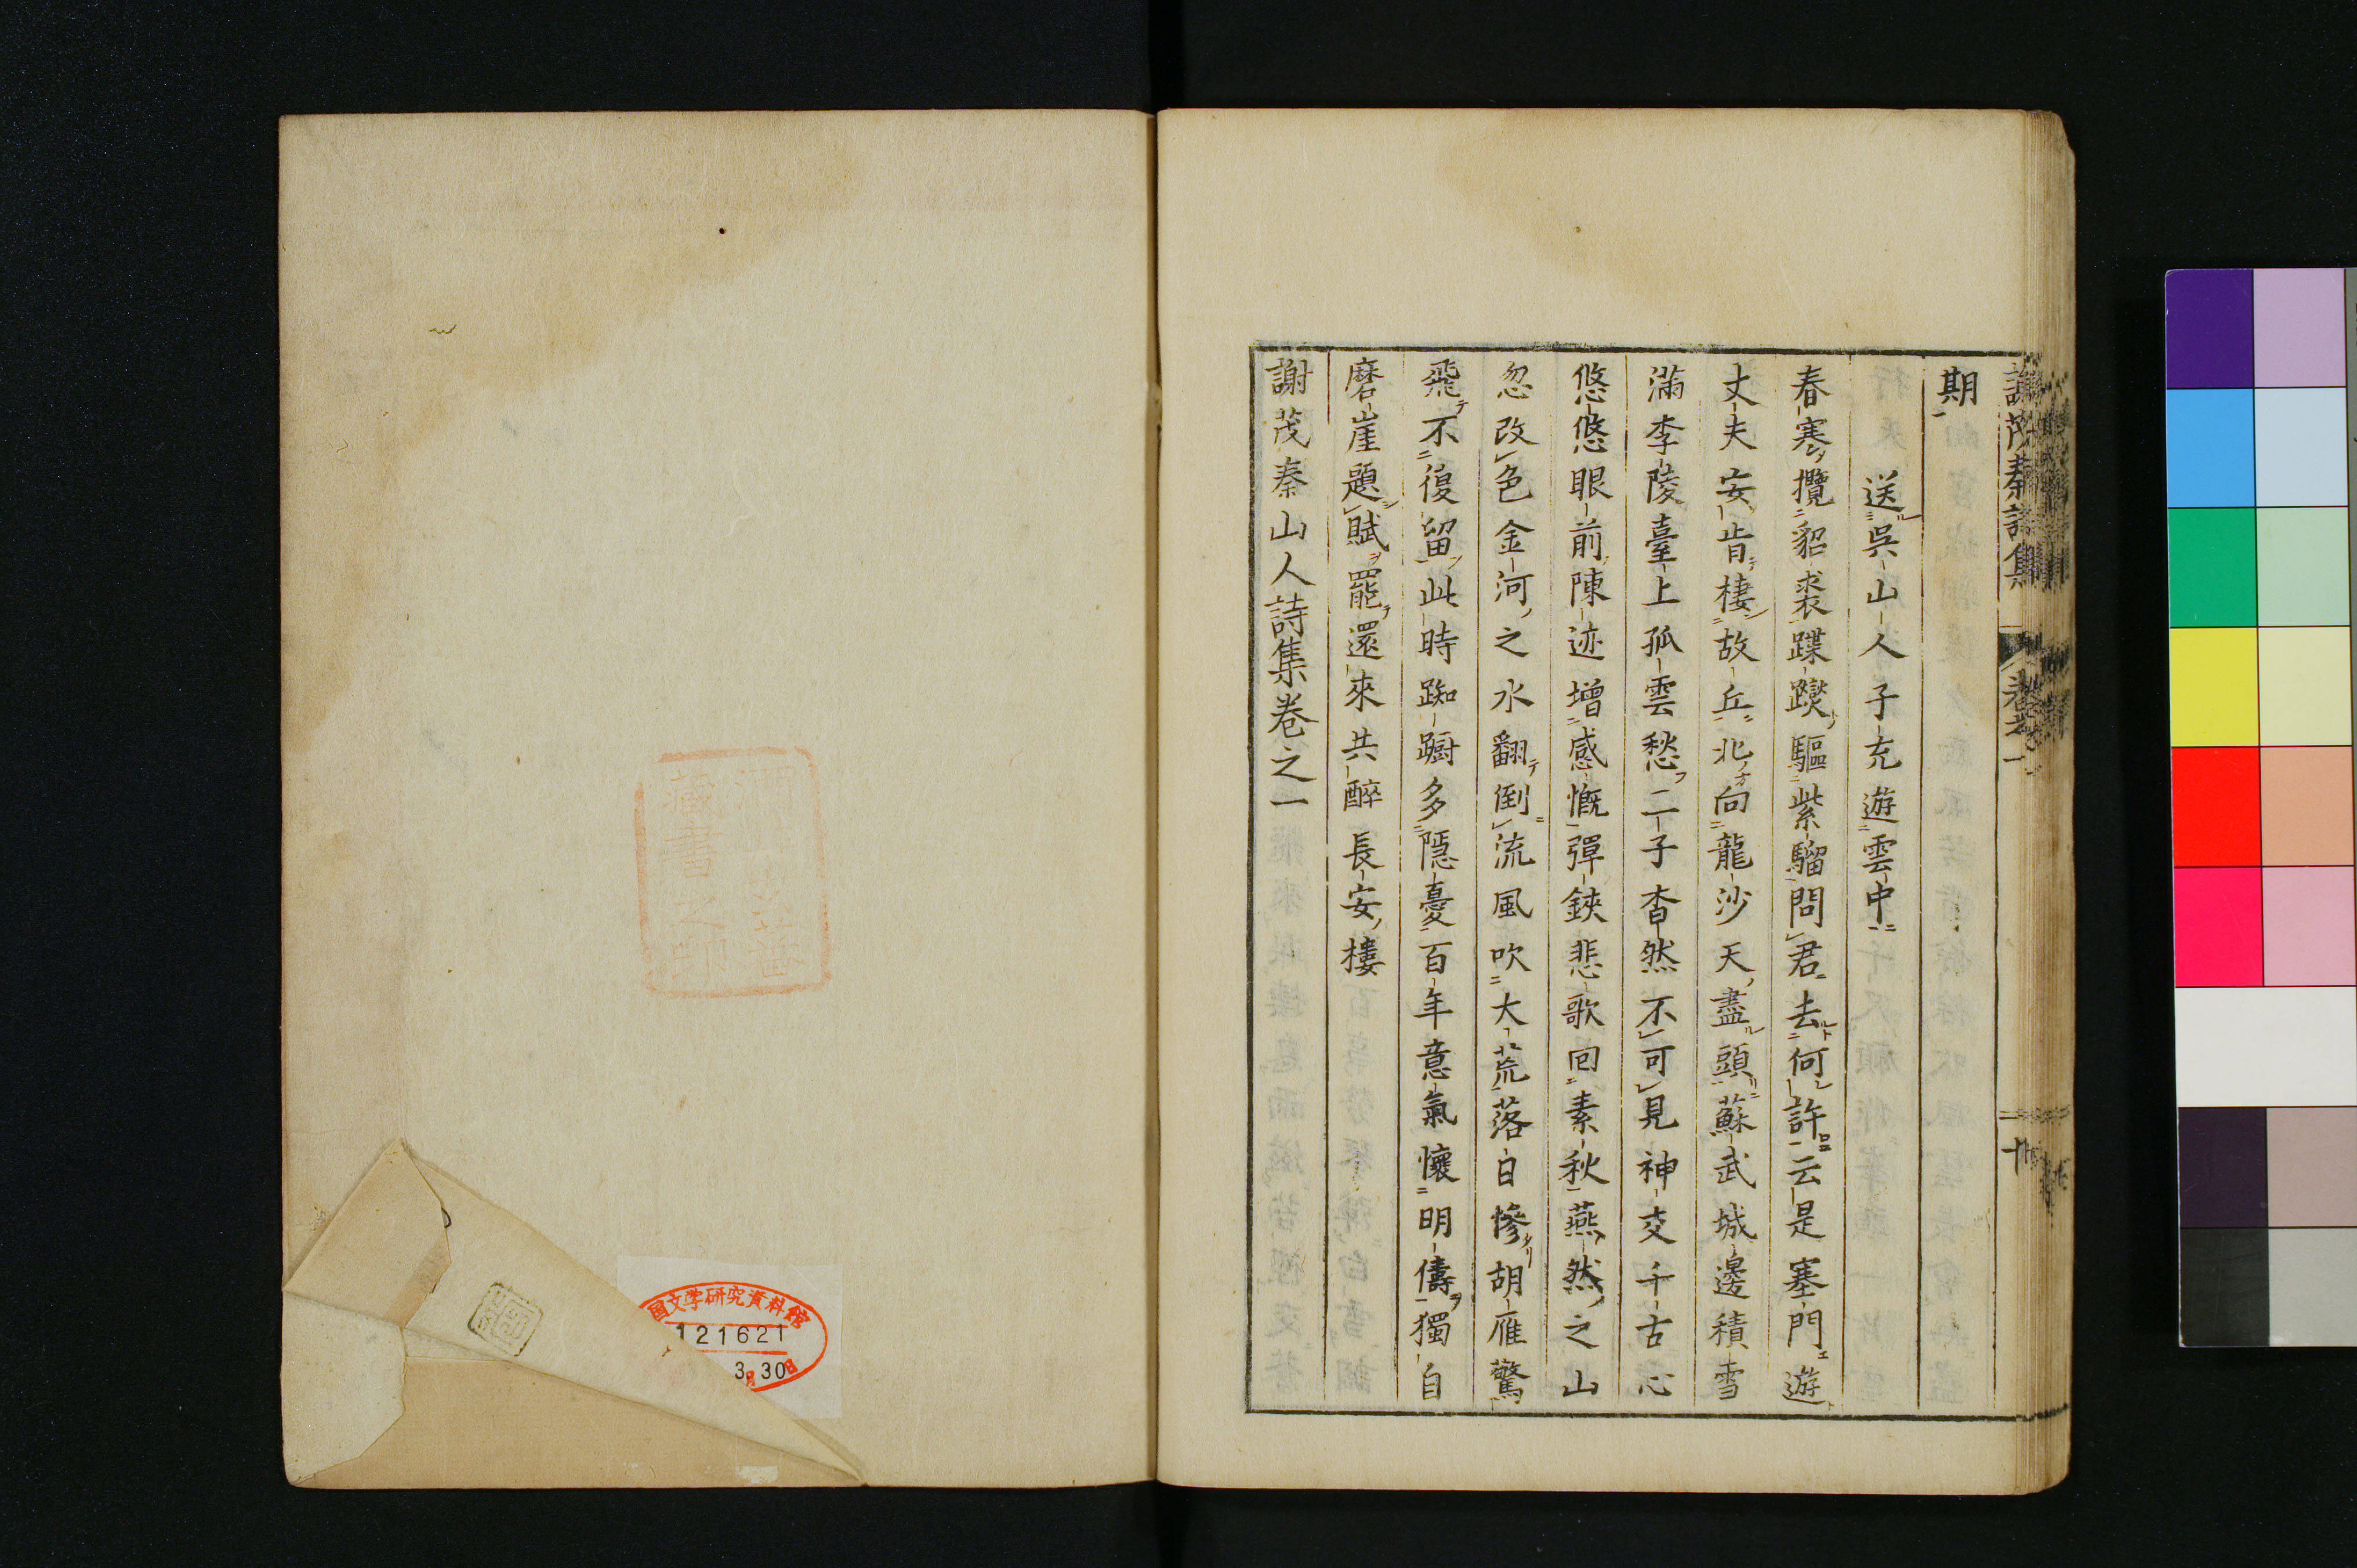 期
送吳山人子充遊雲中
春寒攬貂裘蹀躞驅紫騮問君去何許云是塞門遊
丈夫安肯棲故丘北向龍沙天盡頭蘇武城邊積雪
滿李陵臺上孤雲愁二子杳然不可見神交千古心
悠悠眼前陳迹增感慨彈鋏悲歌回素秋燕然之山
忽改色金河之水翻倒流風吹大荒落日慘胡雁驚
飛不復留此時踟躕多隱憂百年意氣懷明儔獨自
磨崖題賦罷還來共醉長安樓
謝茂秦山人詩集卷之一
藏書之印
国文学研究資料館
121621
3月30日